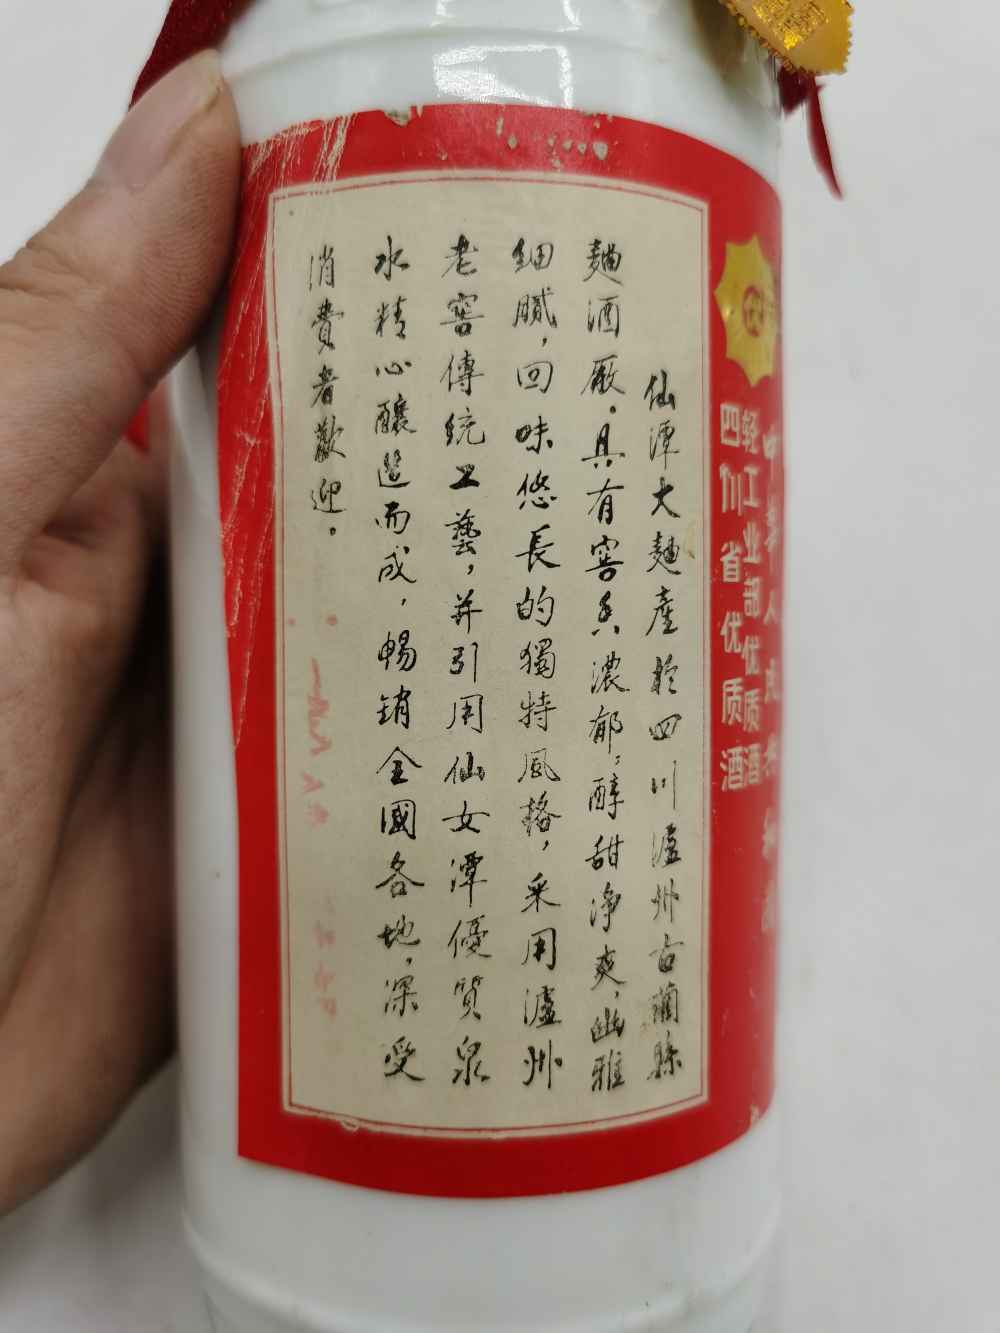 中华人民共和国
轻工业部优质酒
四川省优质酒
仙潭大麯產於四川瀘州古藺縣
麯酒厰。具有窖香濃郁，醇甜净爽，幽雅
细膩，回味悠長的獨特風格，采用瀘州
老窖傳统工藝，并引用仙女潭優質泉
水精心釀造而成，暢销全國各地，深受
消費者歡迎。